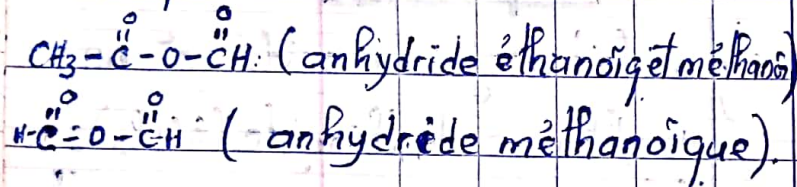 O O
CH3-C-O-CH: (anhydride éthanoïq et méthanoi)
O O
H-C=O-CH (anhydrède méthanoïque).